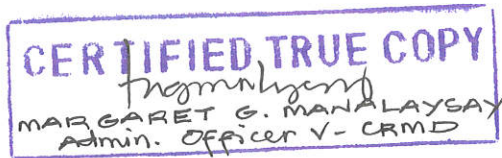 CERTIFIED TRUE COPY
MARGARET G. MANALAYSAY
Admin. Officer V - CRMD